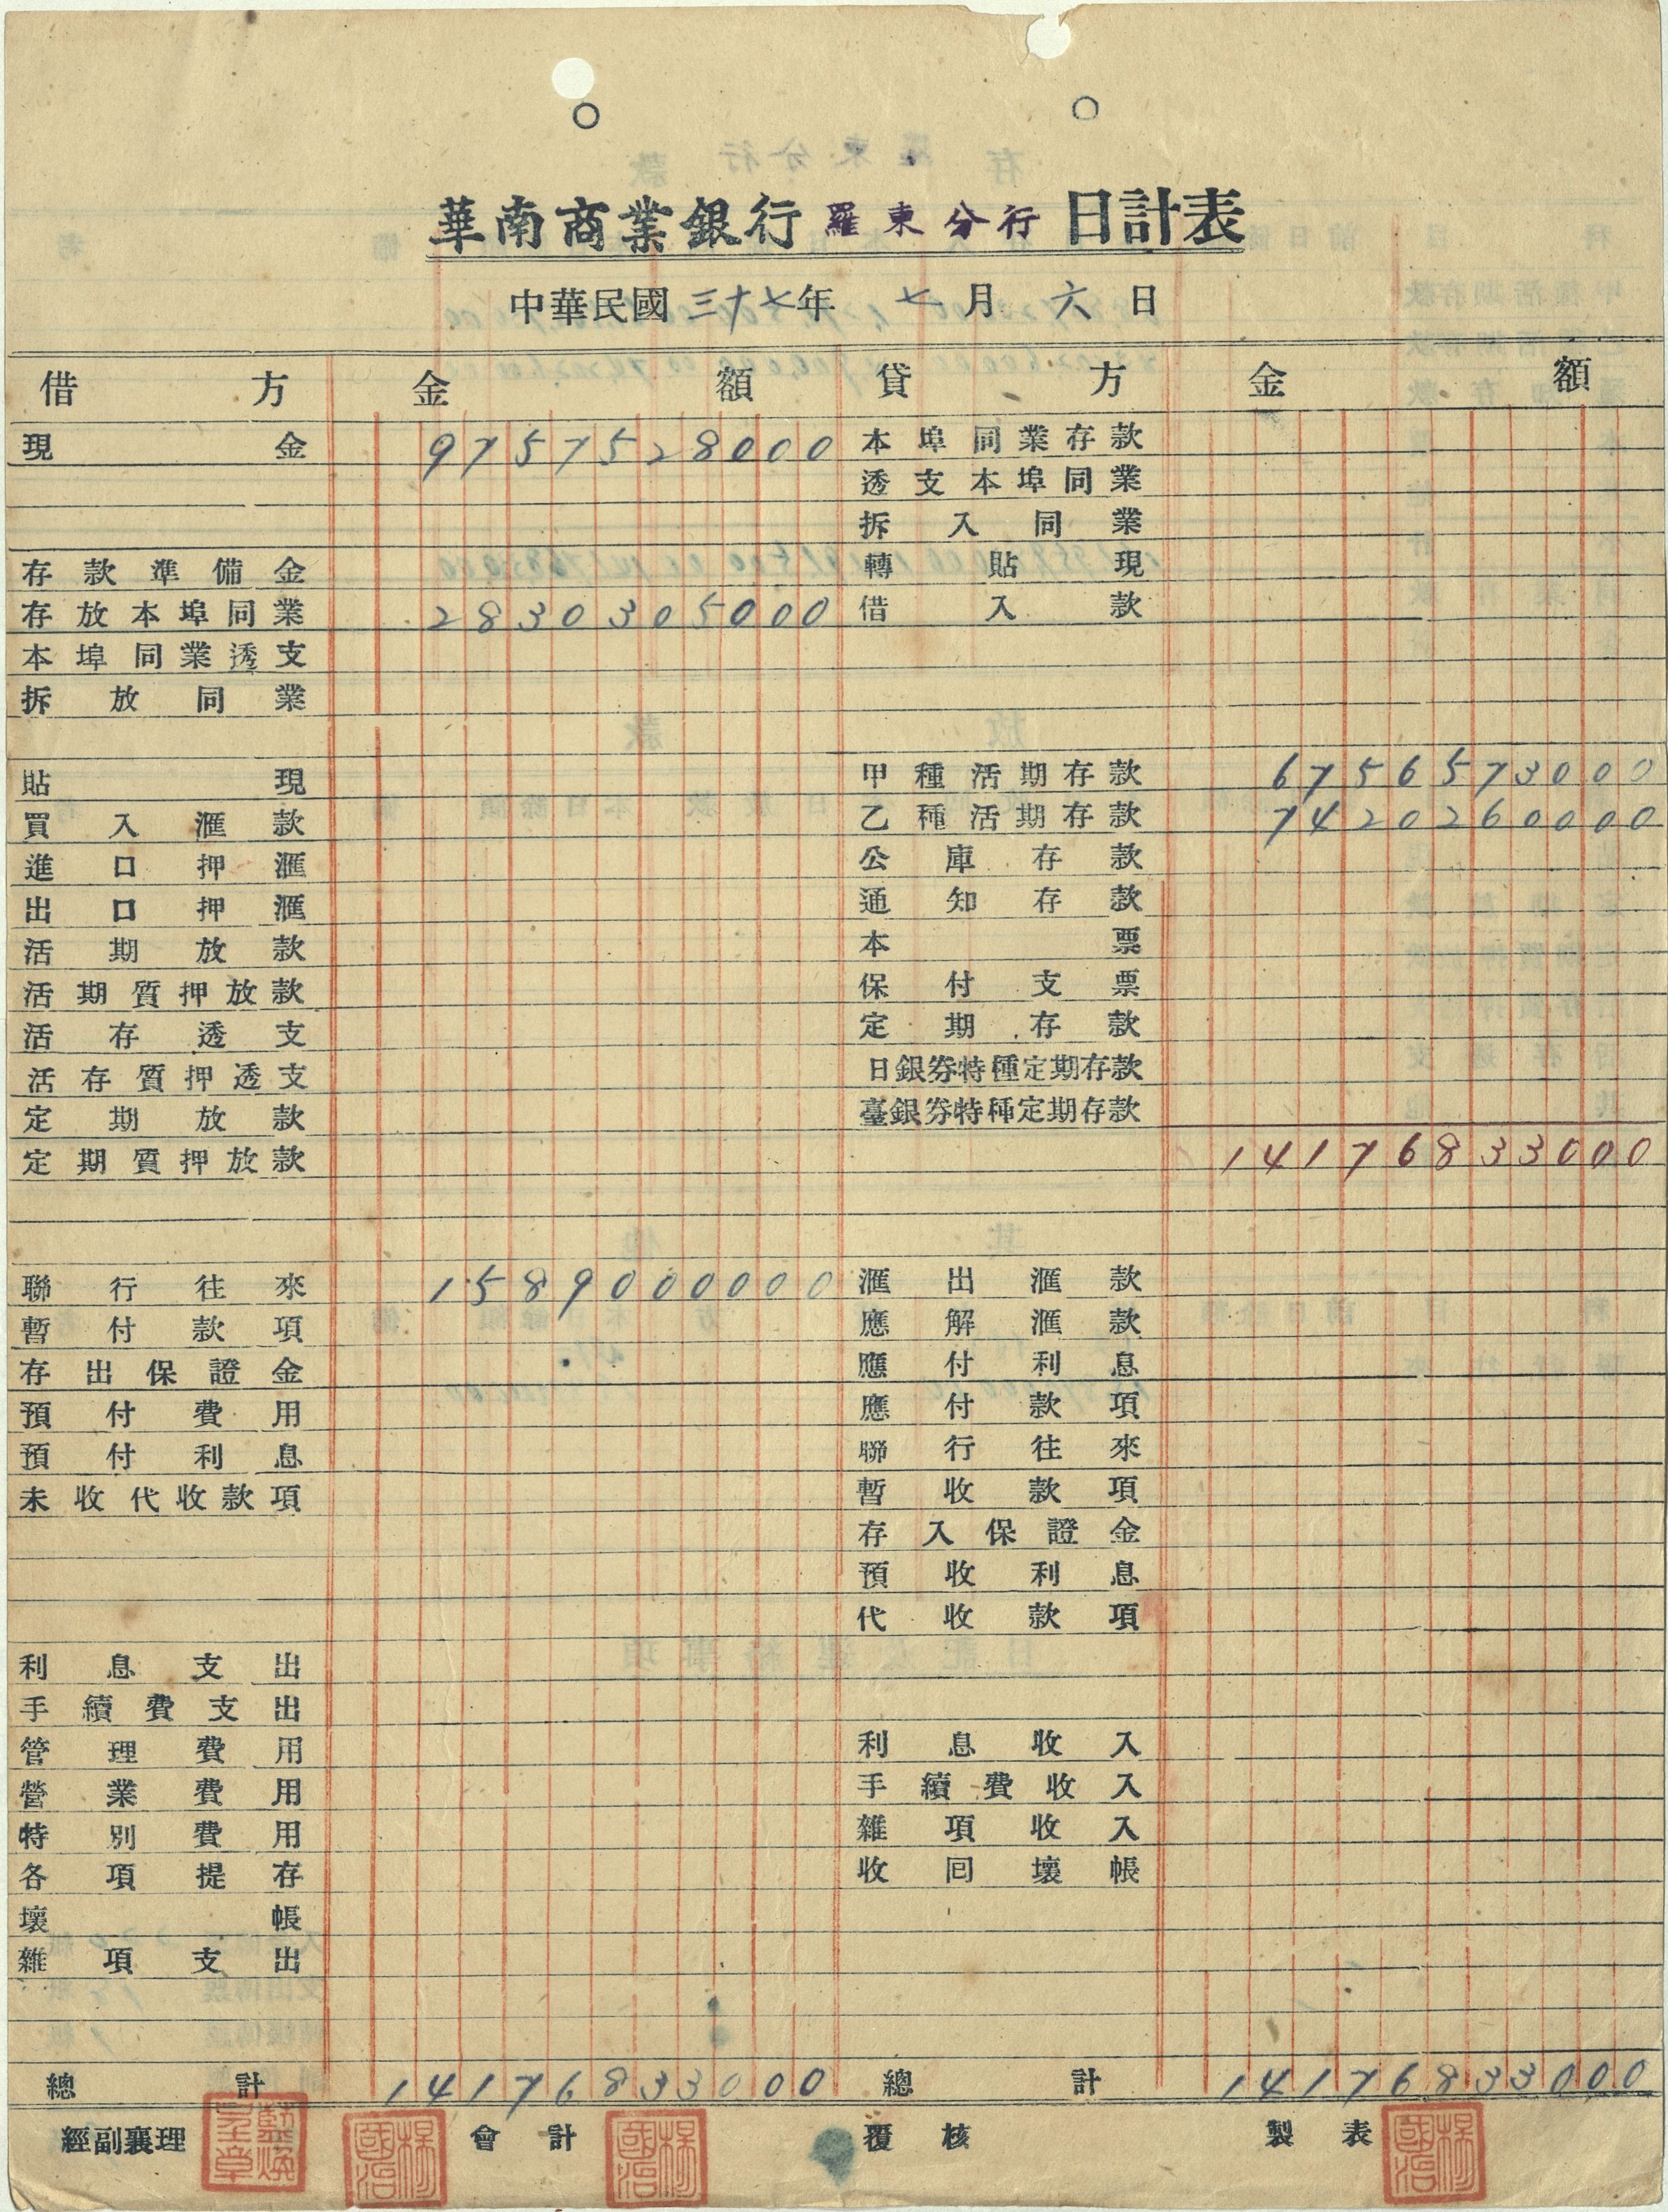 華南商業銀行 羅東分行 日計表
中華民國三十七年 七月 六日
借方 金額 貸方 金額
現金 9757528000 本埠同業存款
透支本埠同業
拆入同業
存款準備金 轉貼現
存放本埠同業 2830305000 借入款
本埠同業透支
拆放同業
貼現 甲種活期存款 6756573000
買入滙款 乙種活期存款 7420260000
進口押滙 公庫存款
出口押滙 通知存款
活期放款 本票
活期質押放款 保付支票
活存透支 定期存款
活存質押透支 日銀券特種定期存款
定期放款 臺銀券特種定期存款
定期質押放款 14176833000
聯行往來 1589000000 滙出滙款
暫付款項 應解滙款
存出保證金 應付利息
預付費用 應付款項
預付利息 聯行往來
未收代收款項 暫收款項
存入保證金
預收利息
代收款項
利息支出
手續費支出
管理費用 利息收入
營業費用 手續費收入
特別費用 雜項收入
各項提存 收回壞帳
壞帳
雜項支出
總計 14176833000 總計 14176833000
經副襄理 會計 覆核 製表
楊國治 楊國治 楊國治